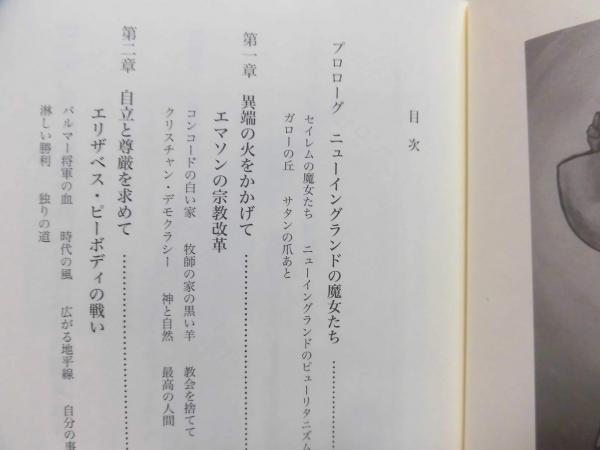 目次
プロローグ　ニューイングランドの魔女たち……………
セイレムの魔女たち　ニューイングランドのピューリタニズム
ガローの丘　サタンの爪あと
第一章　異端の火をかかげて……………
エマソンの宗教改革
コンコードの白い家　牧師の家の黒い羊　教会を捨てて
クリスチャン・デモクラシー　神と自然　最高の人間
第二章　自立と尊厳を求めて……………
エリザベス・ピーボディの戦い
パルマー将軍の血　時代の風　広がる地平線　自分の事
淋しい勝利　独りの道